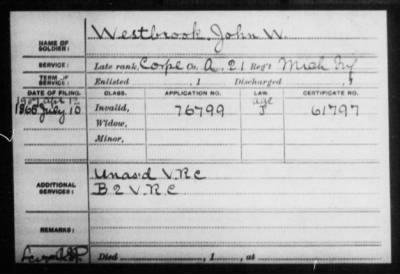 NAME OF SOLDIER: Westbrook, John W.
SERVICE: Late rank, Corpl Co. A, 21 Reg't Mich Inf
TERM OF SERVICE: Enlisted , 1 Discharged , 1
DATE OF FILING. CLASS. APPLICATION NO. LAW. CERTIFICATE NO.
1907 Apr 12 age
1865 July 10 Invalid, 76799 J 61797
Widow,
Minor,
ADDITIONAL SERVICES: Unas'd V.R.C
B 2 V.R.C
REMARKS:
Died , 1 , at